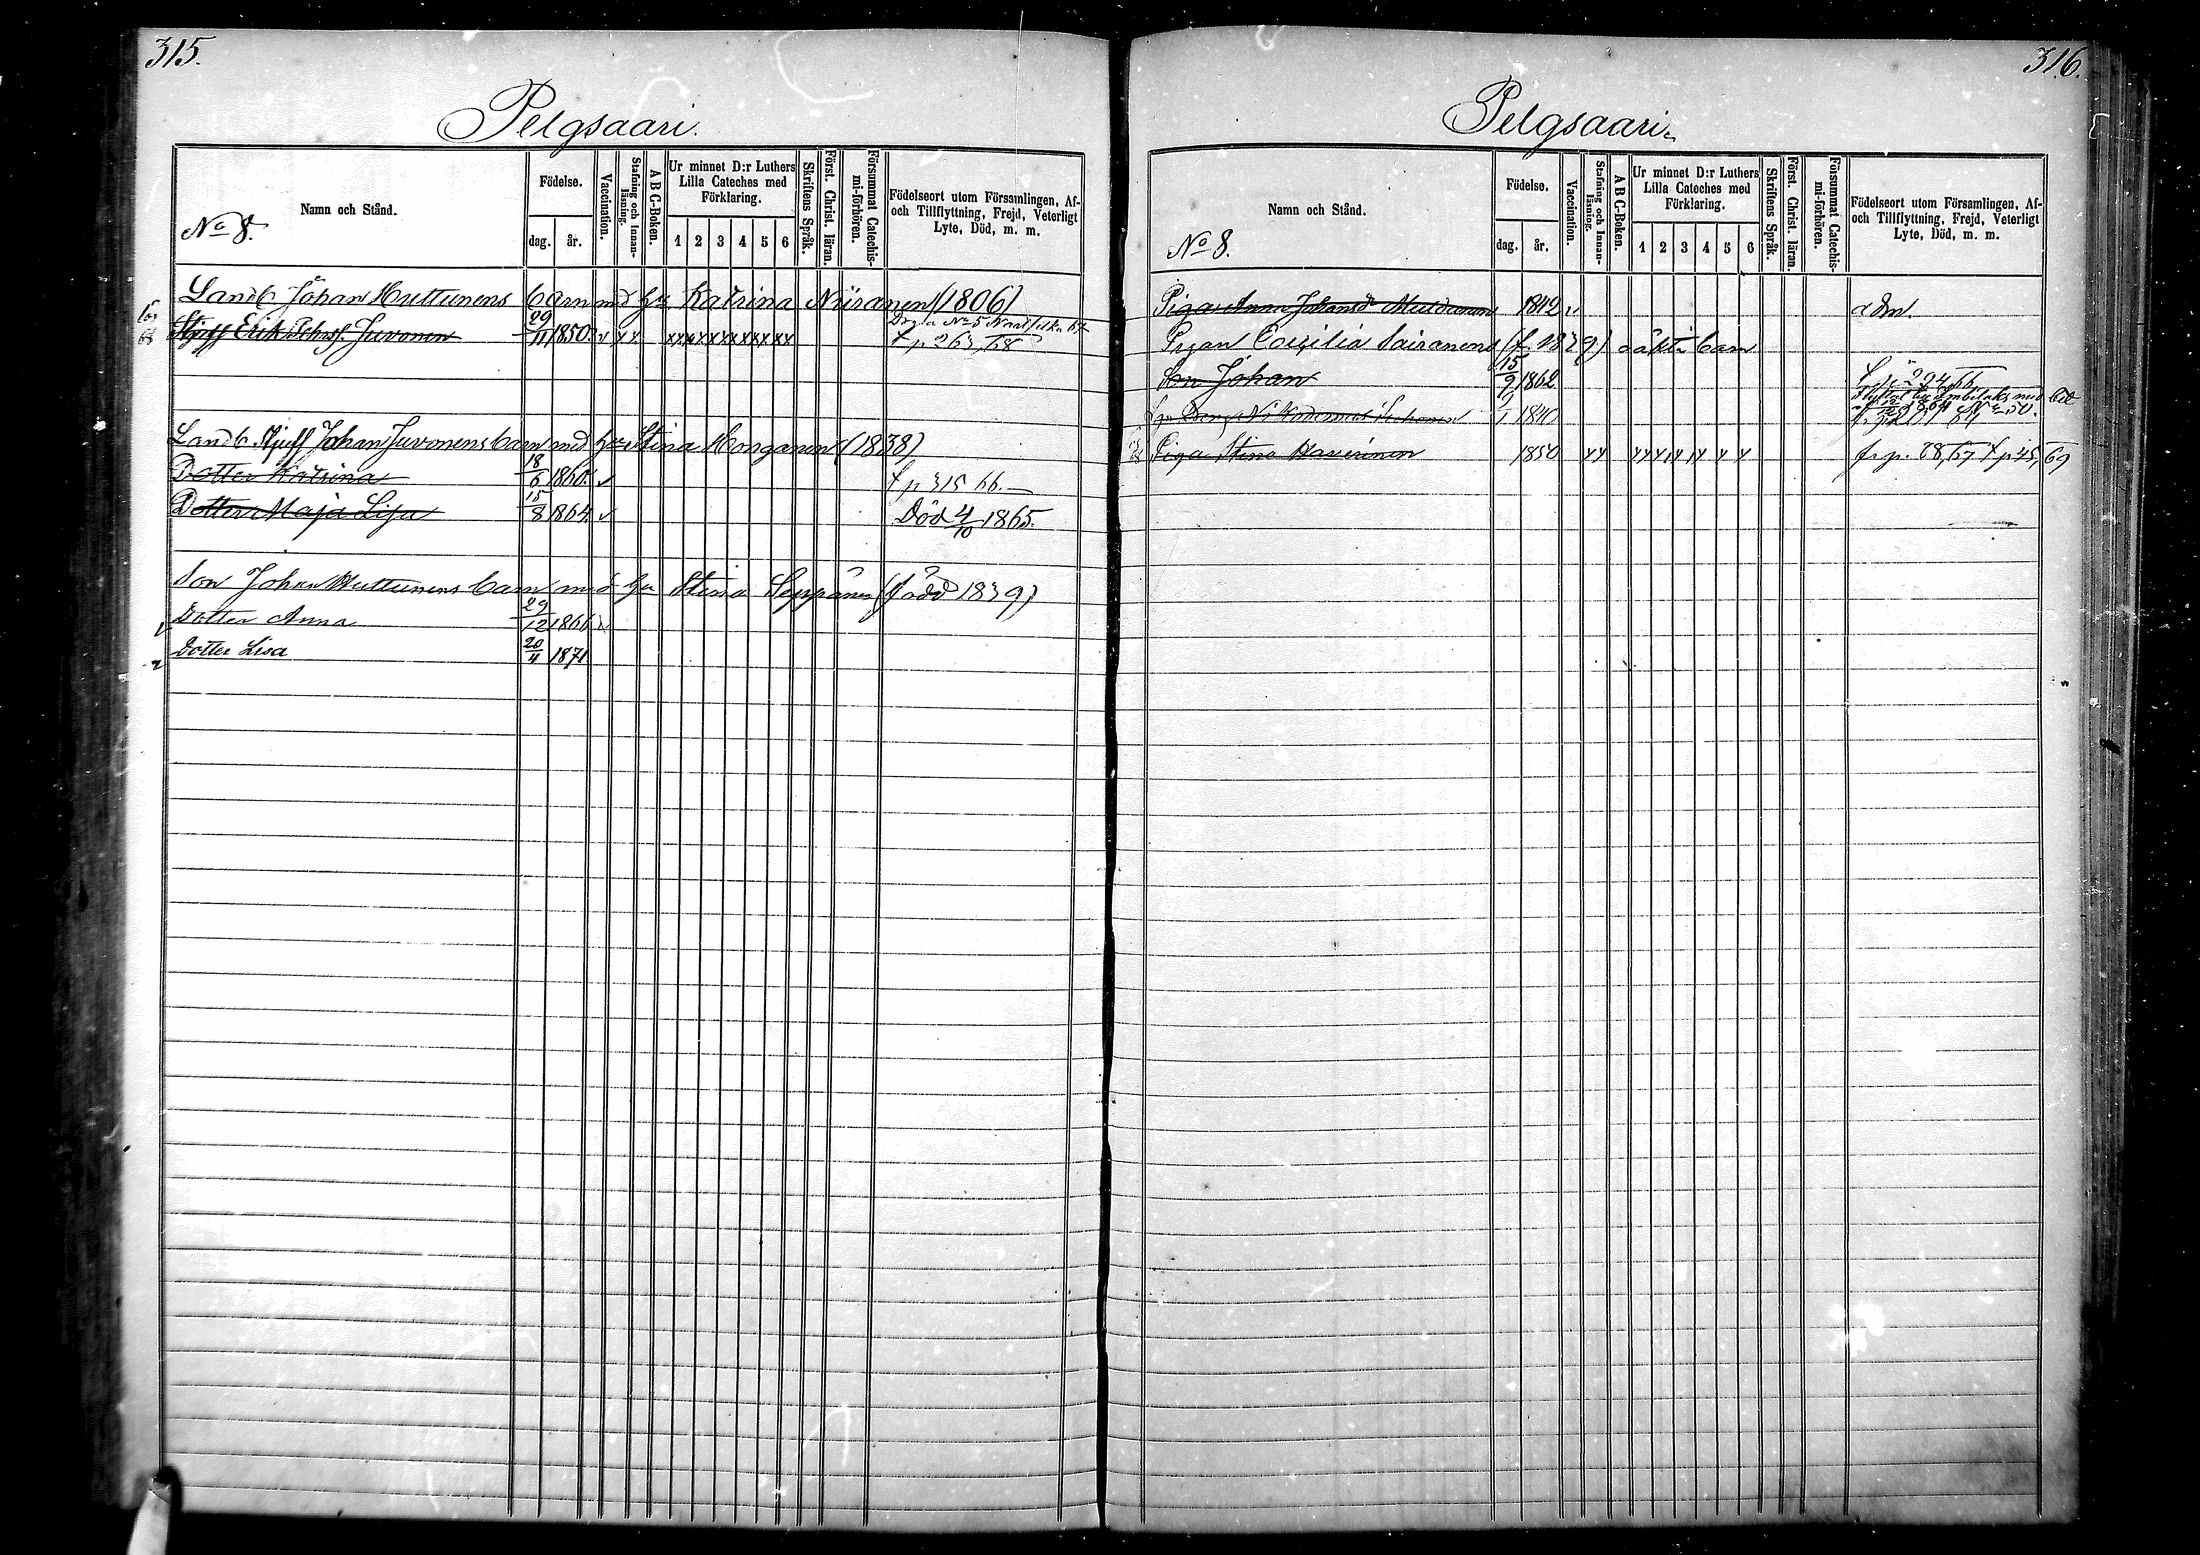 315.
Pelgsaari.
No 8.
Namn och Stånd.
Födelse.
dag. år.
Vaccination.
Stafning och Innan-läsning.
A B C-Boken.
Ur minnet D:r Luthers
Lilla Cateches med
Förklaring.
1 2 3 4 5 6
Skriftens Språk.
Först. Christ. läran.
Försummat Catechis-mi-förhören.
Födelseort utom Församlingen, Af-
och Tillflyttning, Frejd, Veterligt
Lyte, Död, m. m.
Landb. Johan Huttunens barn med hu Katrina Niiranen (1806)
Styfs. Erik Johnsf. Juvonen 29/11 1850. v x x xx xx xx xx xx xx
t p 263, 68
Landb. Styfs Johan Juvonens barn med hu Stina Honganen (1838)
Dotter Katrina 18/6 1860. v t p 315 66.
Dotter Maja Lisa 15/8 1864 v Död 4/10 1865.
Son Johan Huttunens barn med hu Stina Seppänen (född 1839)
Dotter Anna 29/12 1866
Dotter Lisa 20/4 1871
316.
Pelgsaari.
No 8.
Namn och Stånd.
Födelse.
dag. år.
Vaccination.
Stafning och Innan-läsning.
A B C-Boken.
Ur minnet D:r Luthers
Lilla Cateches med
Förklaring.
1 2 3 4 5 6
Skriftens Språk.
Först. Christ. läran.
Försummat Catechis-mi-förhören.
Födelseort utom Församlingen, Af-
och Tillflyttning, Frejd, Veterligt
Lyte, Död, m. m.
Piga Anna Johansd Muldanen 1842 v
Pigan Cecilia Sairanens oäkta barn
Son Johan 15/9 1862
1840
Piga Stina Haverinen 1850 fr p. 88, 67 t p 45, 69